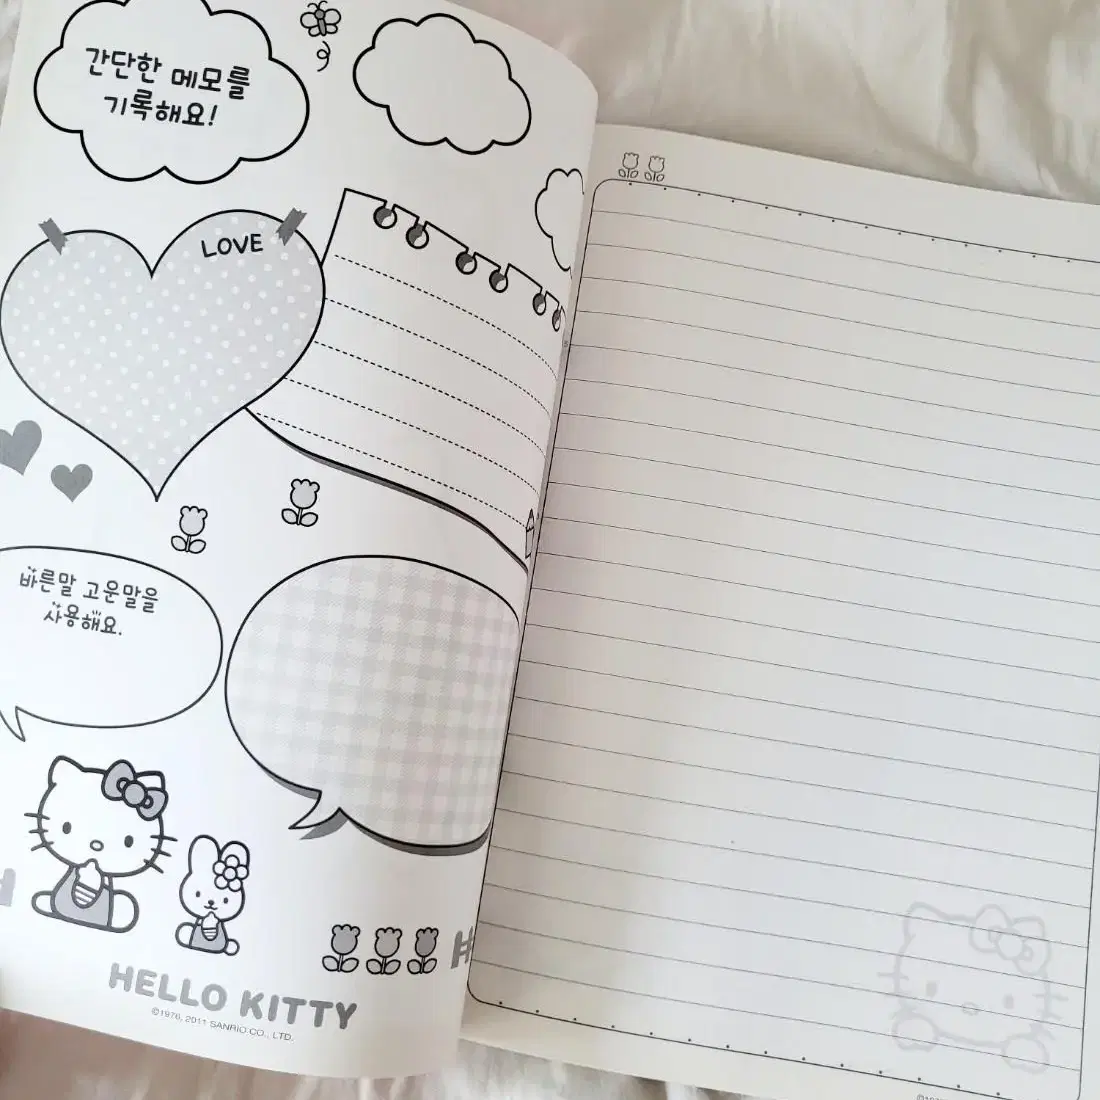 간단한 메모를
기록해요!
LOVE
바른말 고운말을
사용해요.
HELLO KITTY
©1976, 2011 SANRIO CO., LTD.